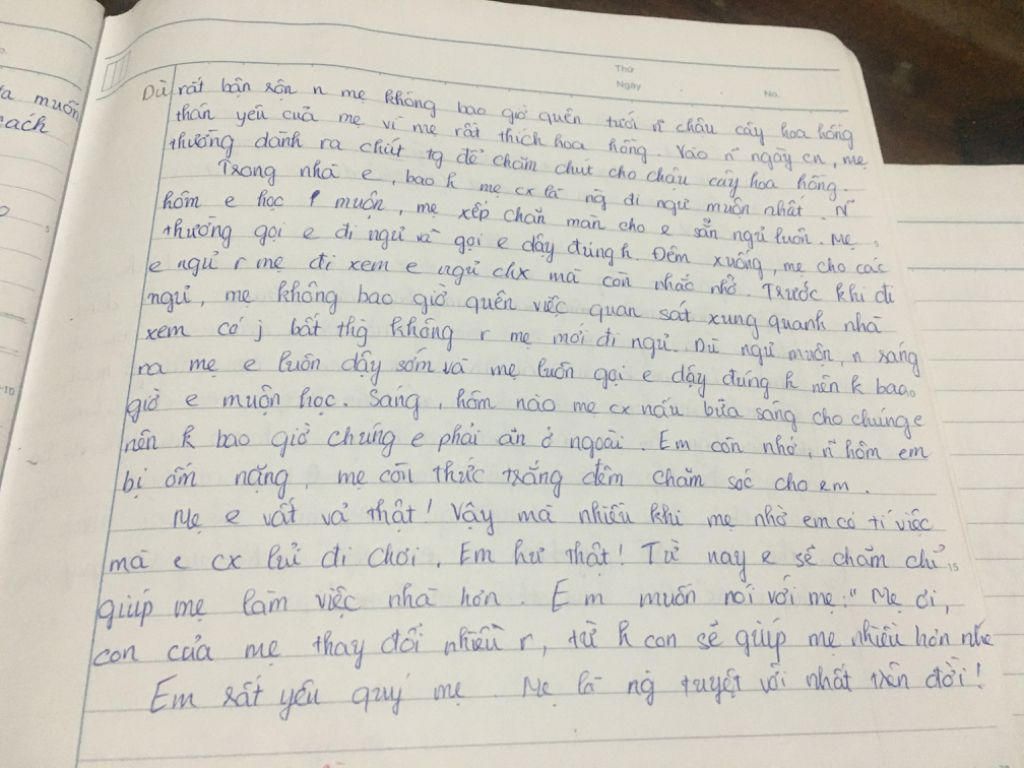 ta muốn
cách
Thứ
Ngày
No.
Dù rất bận rộn n mẹ không bao giờ quên tưới n~ chậu cây hoa hồng
thân yêu của mẹ vì mẹ rất thích hoa hồng. Vào n~ ngày cn, mẹ
thường dành ra chút tg để chăm chút cho chậu cây hoa hồng.
Trong nhà e, bao h mẹ cx là ng đi ngủ muộn nhất. N~
hôm e học muộn, mẹ xếp chăn màn cho e sẵn ngủ luôn. Mẹ
thường gọi e đi ngủ và gọi e dậy đúng h. Đêm xuống, mẹ cho các
e ngủ r mẹ đi xem e ngủ chx mà còn nhắc nhở. Trước khi đi
ngủ, mẹ không bao giờ quên việc quan sát xung quanh nhà
xem có j bất thg không r mẹ mới đi ngủ. Dù ngủ muộn, n sáng
ra mẹ e luôn dậy sớm và mẹ luôn gọi e dậy đúng h nên k bao
giờ e muộn học. Sáng, hôm nào mẹ cx nấu bữa sáng cho chúng e
nên k bao giờ chúng e phải ăn ở ngoài. Em còn nhớ, n~ hôm em
bị ốm nặng, mẹ còn thức trắng đêm chăm sóc cho em.
Mẹ e vất vả thật! Vậy mà nhiều khi mẹ nhờ em có tí việc
mà e cx lủi đi chơi. Em hư thật! Từ nay e sẽ chăm chỉ
15
giúp mẹ làm việc nhà hơn. Em muốn nói với mẹ: "Mẹ ơi,
con của mẹ thay đổi nhiều r, từ h con sẽ giúp mẹ nhiều hơn nhé
Em rất yêu quý mẹ. Mẹ là ng tuyệt vời nhất trên đời!